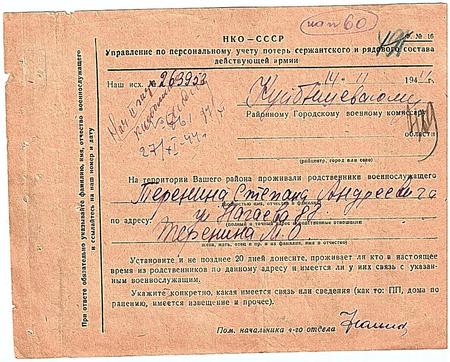 пап 60
НКО—СССР
№ 16
Управление по персональному учету потерь сержантского и рядового состава
действующей армии
Наш исх. № 263953
14-11 194
Куйбышевскому
Районному Городскому военному комиссару
27/XI-44г.
области
(райцентр, город или село)
На территории Вашего района проживали родственники военнослужащего
Теренина Степана Андреевича
по адресу: ул Нагаева 88
(полный и точный адрес родственников)
Теренина М.
(жена, мать, отец и пр и их фамилия, имя и отчество)
Установите и не позднее 20 дней донесите, проживает ли кто в настоящее
время из родственников по данному адресу и имеется ли у них связь с указан-
ным военнослужащим.
Укажите конкретно, какая имеется связь или сведения (как то: ПП, дома по
ранению, имеется извещение и прочее).
Пом. начальника 4-го отдела
При ответе обязательно указывайте фамилию, имя, отчество военнослужащего
и ссылайтесь на наш номер и дату